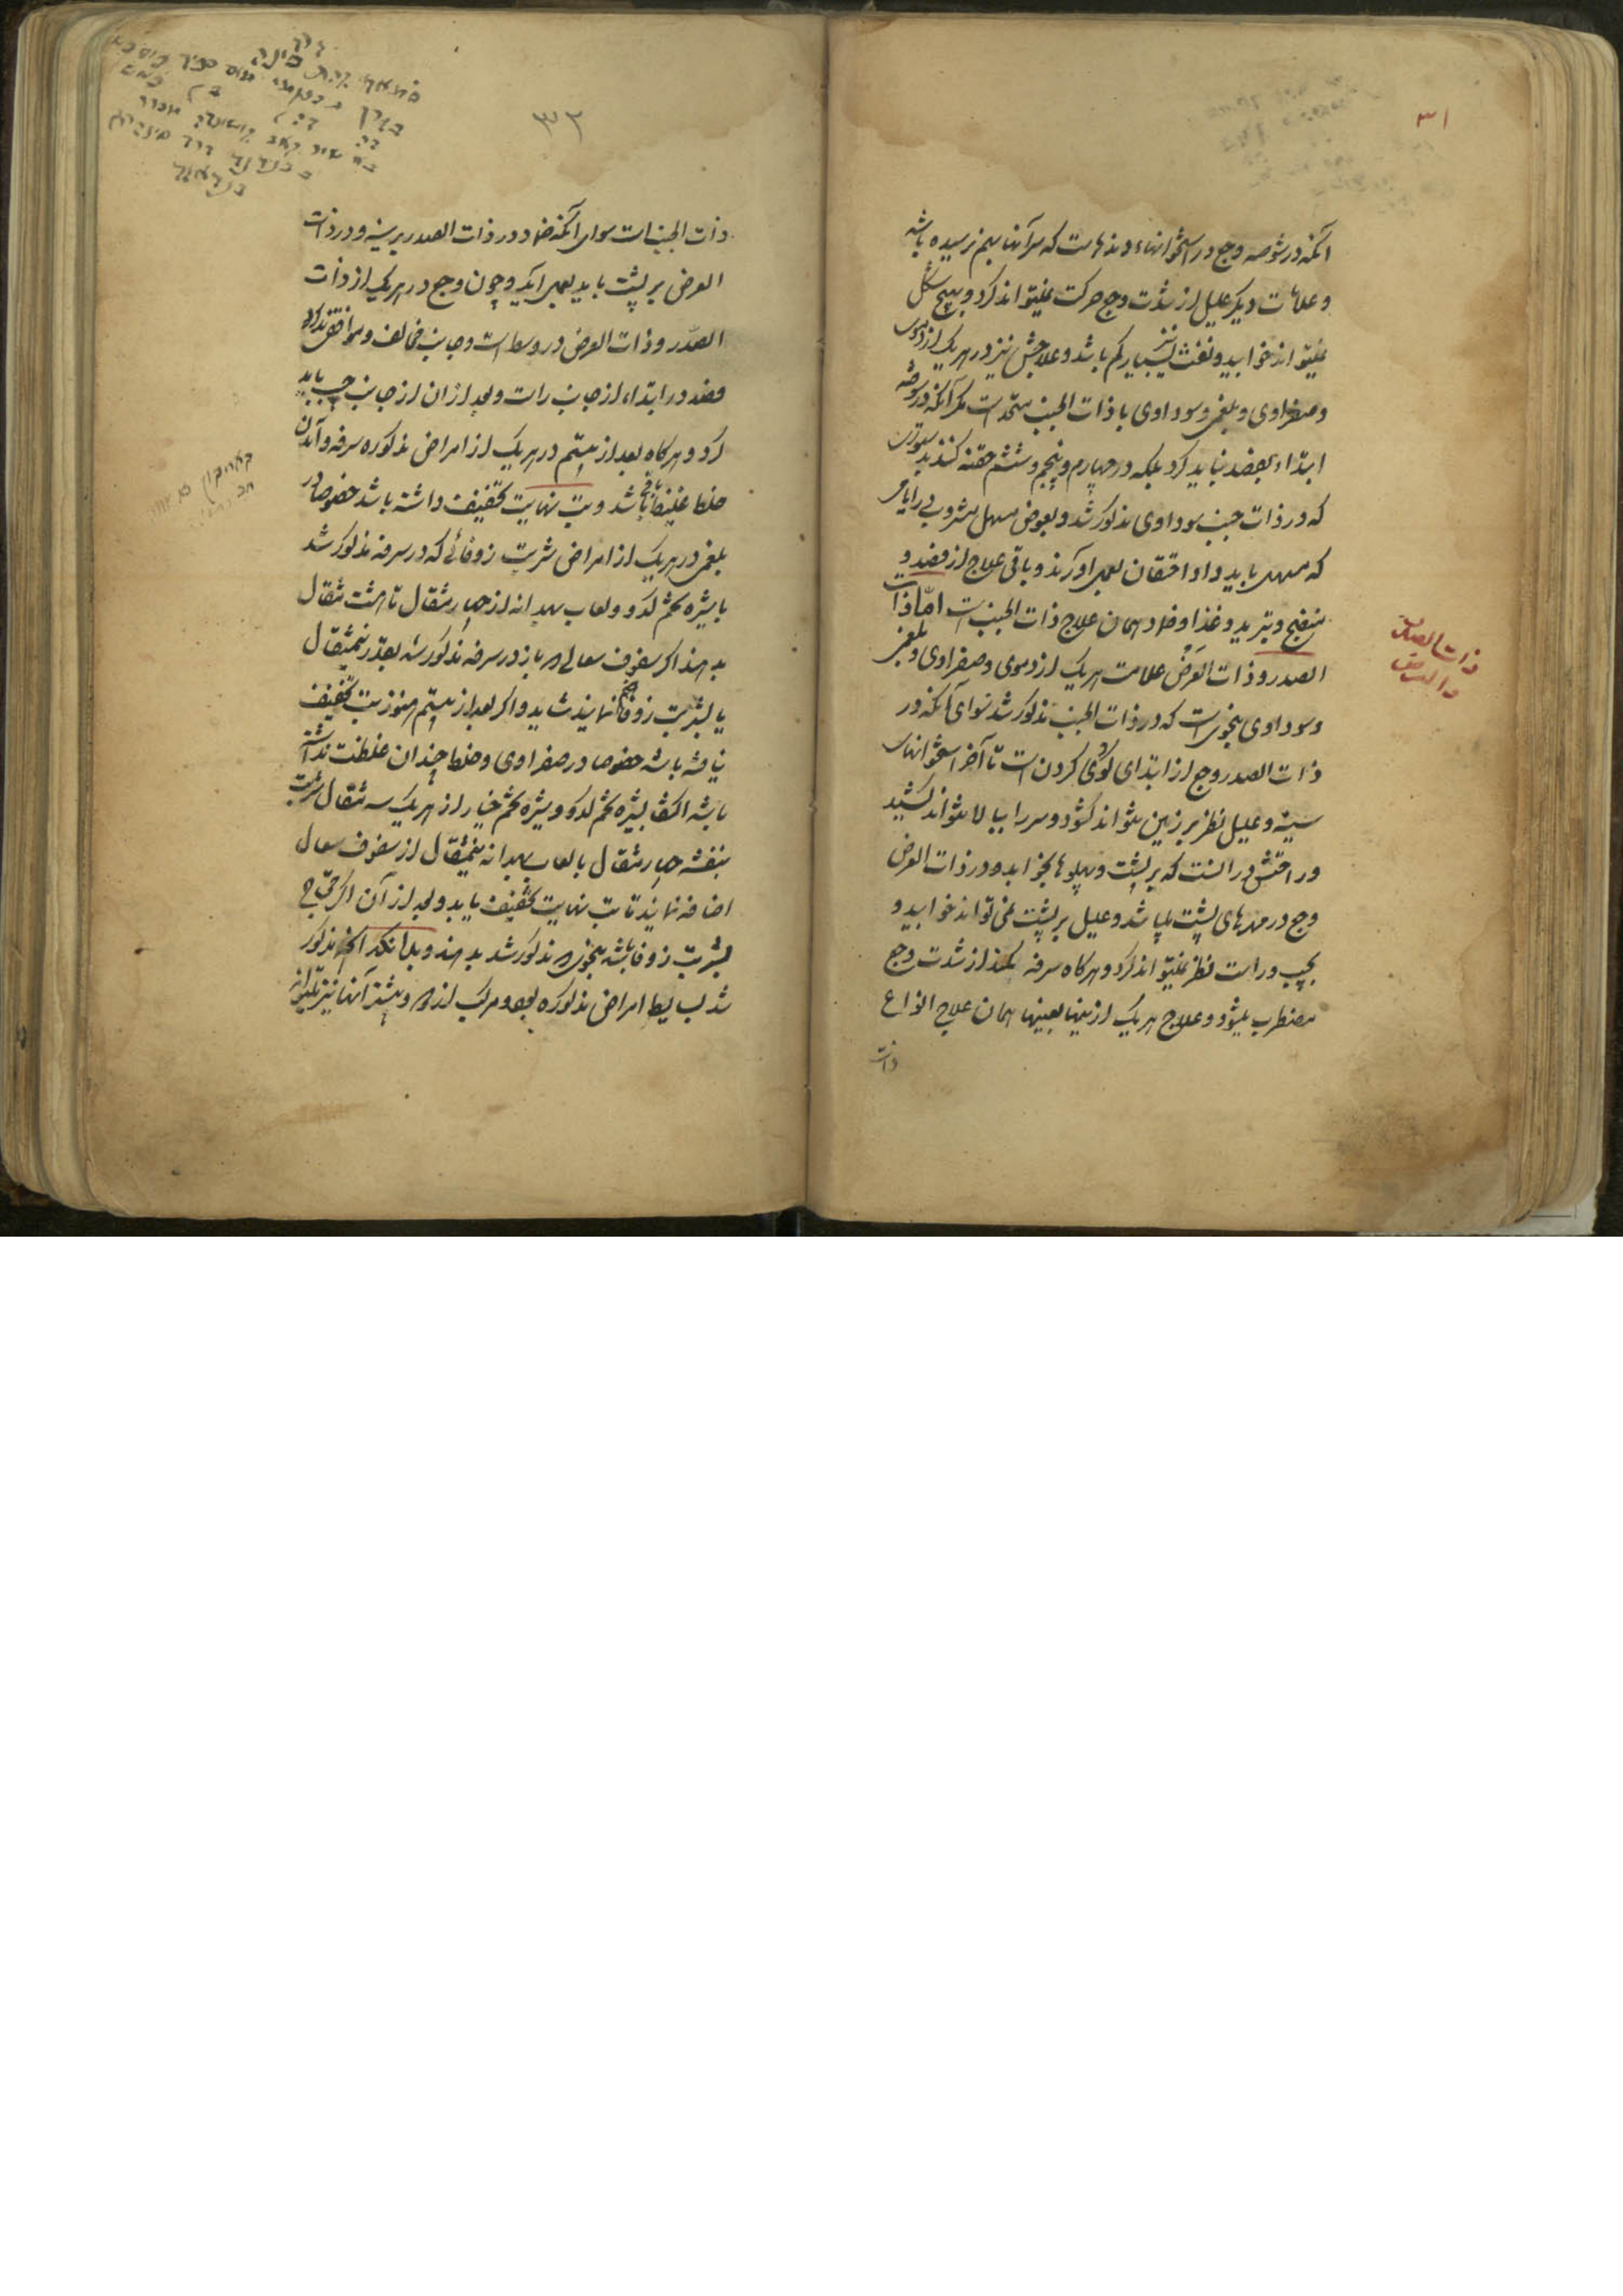 ۳۱
آنکه در شوصه وجع در استخوانهاء دنده‌هاست که سر آنها بهم نرسیده باشد
و علامات دیگر علیل از شدت وجع حرکت نمیتواند کرد و بهیچ شکل
نمیتواند خوابید و نفث نیز بسیار کم باشد و علاجش نیز در هر یک از دموی
و صفراوی و بلغمی و سوداوی با ذات الجنب متحد است مگر آنکه در شوصه
ابتداء بفصد نباید کرد بلکه در چهارم و پنجم و ششم حقنه کنند بدستوری
که در ذات جنب سوداوی مذکور شد و بعوض مسهل مشروبی در ایامی
که مسهل باید داد احتقان بعمل آورند و باقی علاج از فصد و
منضج و تبرید و غذا و ضماد همان علاج ذات الجنب است امّا ذات
الصدر و ذات العَرض علامت هر یک از دموی و صفراوی و بلغمی
و سوداوی بنحویست که در ذات الجنب مذکور شد سوای آنکه در
ذات الصدر وجع از ابتدای گودی گردن است تا آخر استخوانهای
سینه و علیل نظر بر زمین نتواند گشود و سر را ببالا نتواند کشید
و راحتش در آنست که بر پشت و پهلوها بخوابد و در ذات العرض
وجع در مهرهای پشت میباشد و علیل بر پشت نمی تواند خوابید و
بچپ و راست نظر نمیتواند کرد و هرگاه سرفه بکند از شدت وجع
مضطرب میشود و علاج هر یک از اینها بعینها همان علاج انواع
ذات
ذات الصدر
والعرض
۳۲
ذات الجنب است سوای آنکه ضماد در ذات الصدر بر سینه و در ذات
العرض بر پشت باید بعمل آید و چون وجع در هر یک از ذات
الصّدر و ذات العرض در وسط است و جانب مخالف و موافق ندارد
فصد در ابتداء از جانب راست و بعد از آن از جانب چپ باید
کرد و هرگاه بعد از بیستم در هر یک از امراض مذکوره سرفه و آمدن
خلط غلیظ باقی باشد و تب نهایت تخفیف داشته باشد خصوصا در
بلغمی در هر یک از امراض شربت زوفائی که در سرفه مذکور شد
با شیره تخم کدو و لعاب بهدانه از چهار مثقال تا هشت مثقال
بدهند اگر سفوف سعالی که باز در سرفه مذکور شد بقدر نیمثقال
با شربت زوفا ضم نمایند شاید و اگر بعد از بیستم هنوز تب تخفیف
نیافته باشد خصوصا در صفراوی و خلط چندان غلظت نداشته
باشد اکتفا بشیره تخم کدو و شیره تخم خیار از هر یک سه مثقال شربت
بنفشه چهار مثقال با لعاب بهدانه نیمثقال از سفوف سعال
اضافه نمایند تا تب نهایت تخفیف یابد و بعد از آن اگر محتاج
بشربت زوفا باشد بنحوی که مذکور شد بدهند و بدانکه آنچه مذکور
شد بسایط امراض مذکوره بود و مرکب از دو و بیشتر آنها نیز میتواند